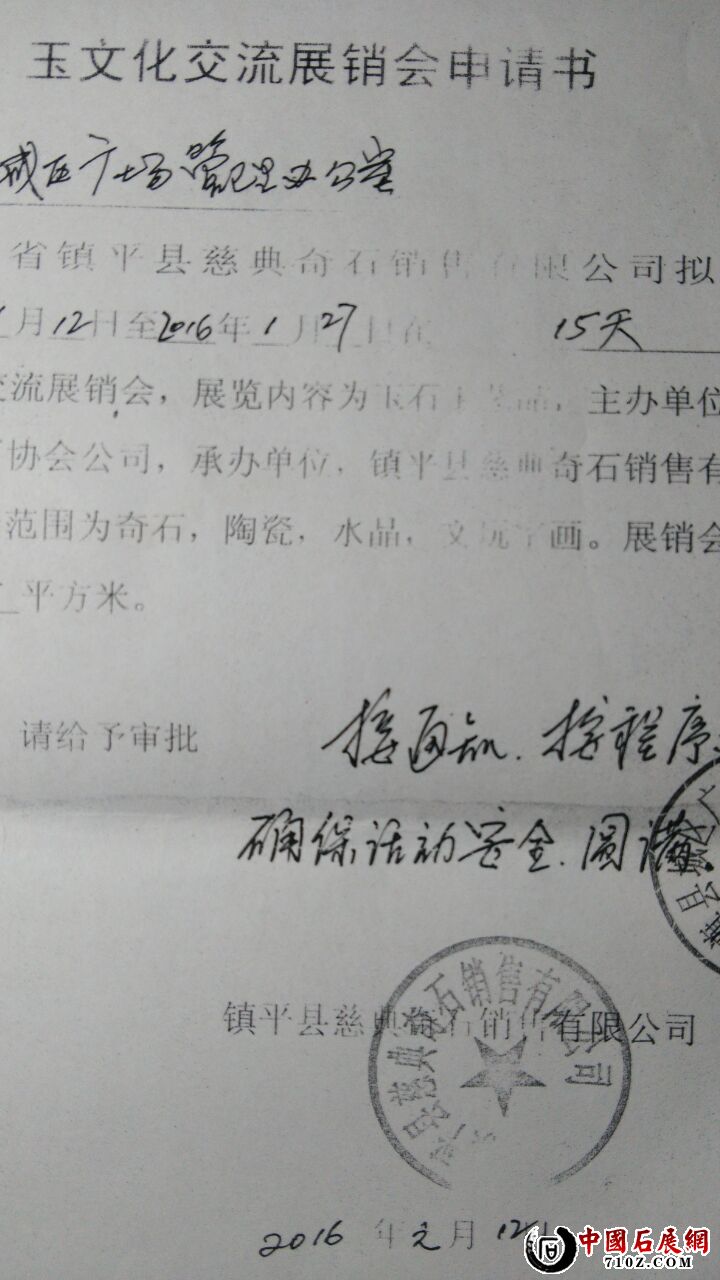 玉文化交流展销会申请书
城区广场管理办公室
省镇平县慈典奇石销售有限公司拟
月12日至2016年1月27日在 15天
交流展销会,展览内容为玉石工艺品,主办单位
协会公司,承办单位,镇平县慈典奇石销售有
范围为奇石,陶瓷,水品,文玩字画。展销会
平方米。
请给予审批
按通知、按程序
确保活动安全、圆满、
镇平县慈典奇石销售有限公司
平县慈典奇石销售有限公司
2016年元月12日
中國石展網
710Z.COM